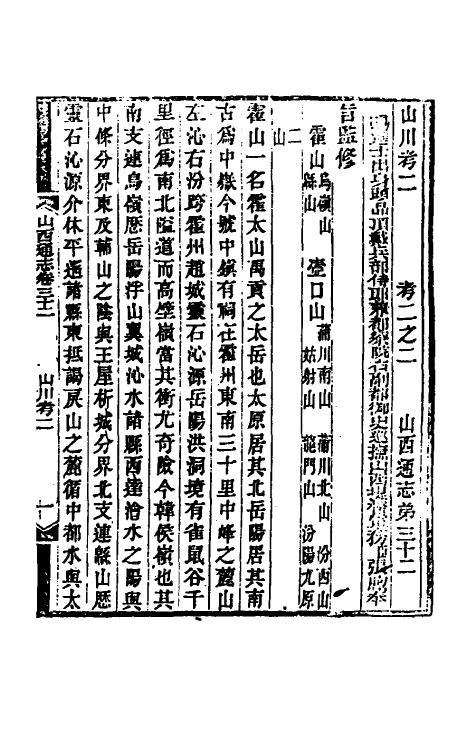 山川考二 考二之二 山西通志第三十二
品頂戴兵部侍郎兼都察院右副都御史巡撫山西
旨監修
霍山 烏嶺山 緜山 壺口山 蒲川南山 姑射山 蒲川北山 龍門山 汾西山 汾陽九原
山二
霍山一名霍太山禹貢之太岳也太原居其北岳陽居其南
古爲中嶽今號中嶺有祠在霍州東南三十里中峰之麓山
左沁右汾跨霍州趙城靈石沁源岳陽洪洞境有雀鼠谷千
里徑爲南北隘道而高壁嶺當其衝尤奇險今韓侯嶺也其
南支連烏嶺歷岳陽浮山翼城沁水諸縣西達澮水之陽與
中條分界東及輔山之陰與王屋析城分界北支連緜山歷
靈石沁源介休平遙諸縣東抵謁戾山之麓循中都水與太
山西通志卷三十二 山川考二 一